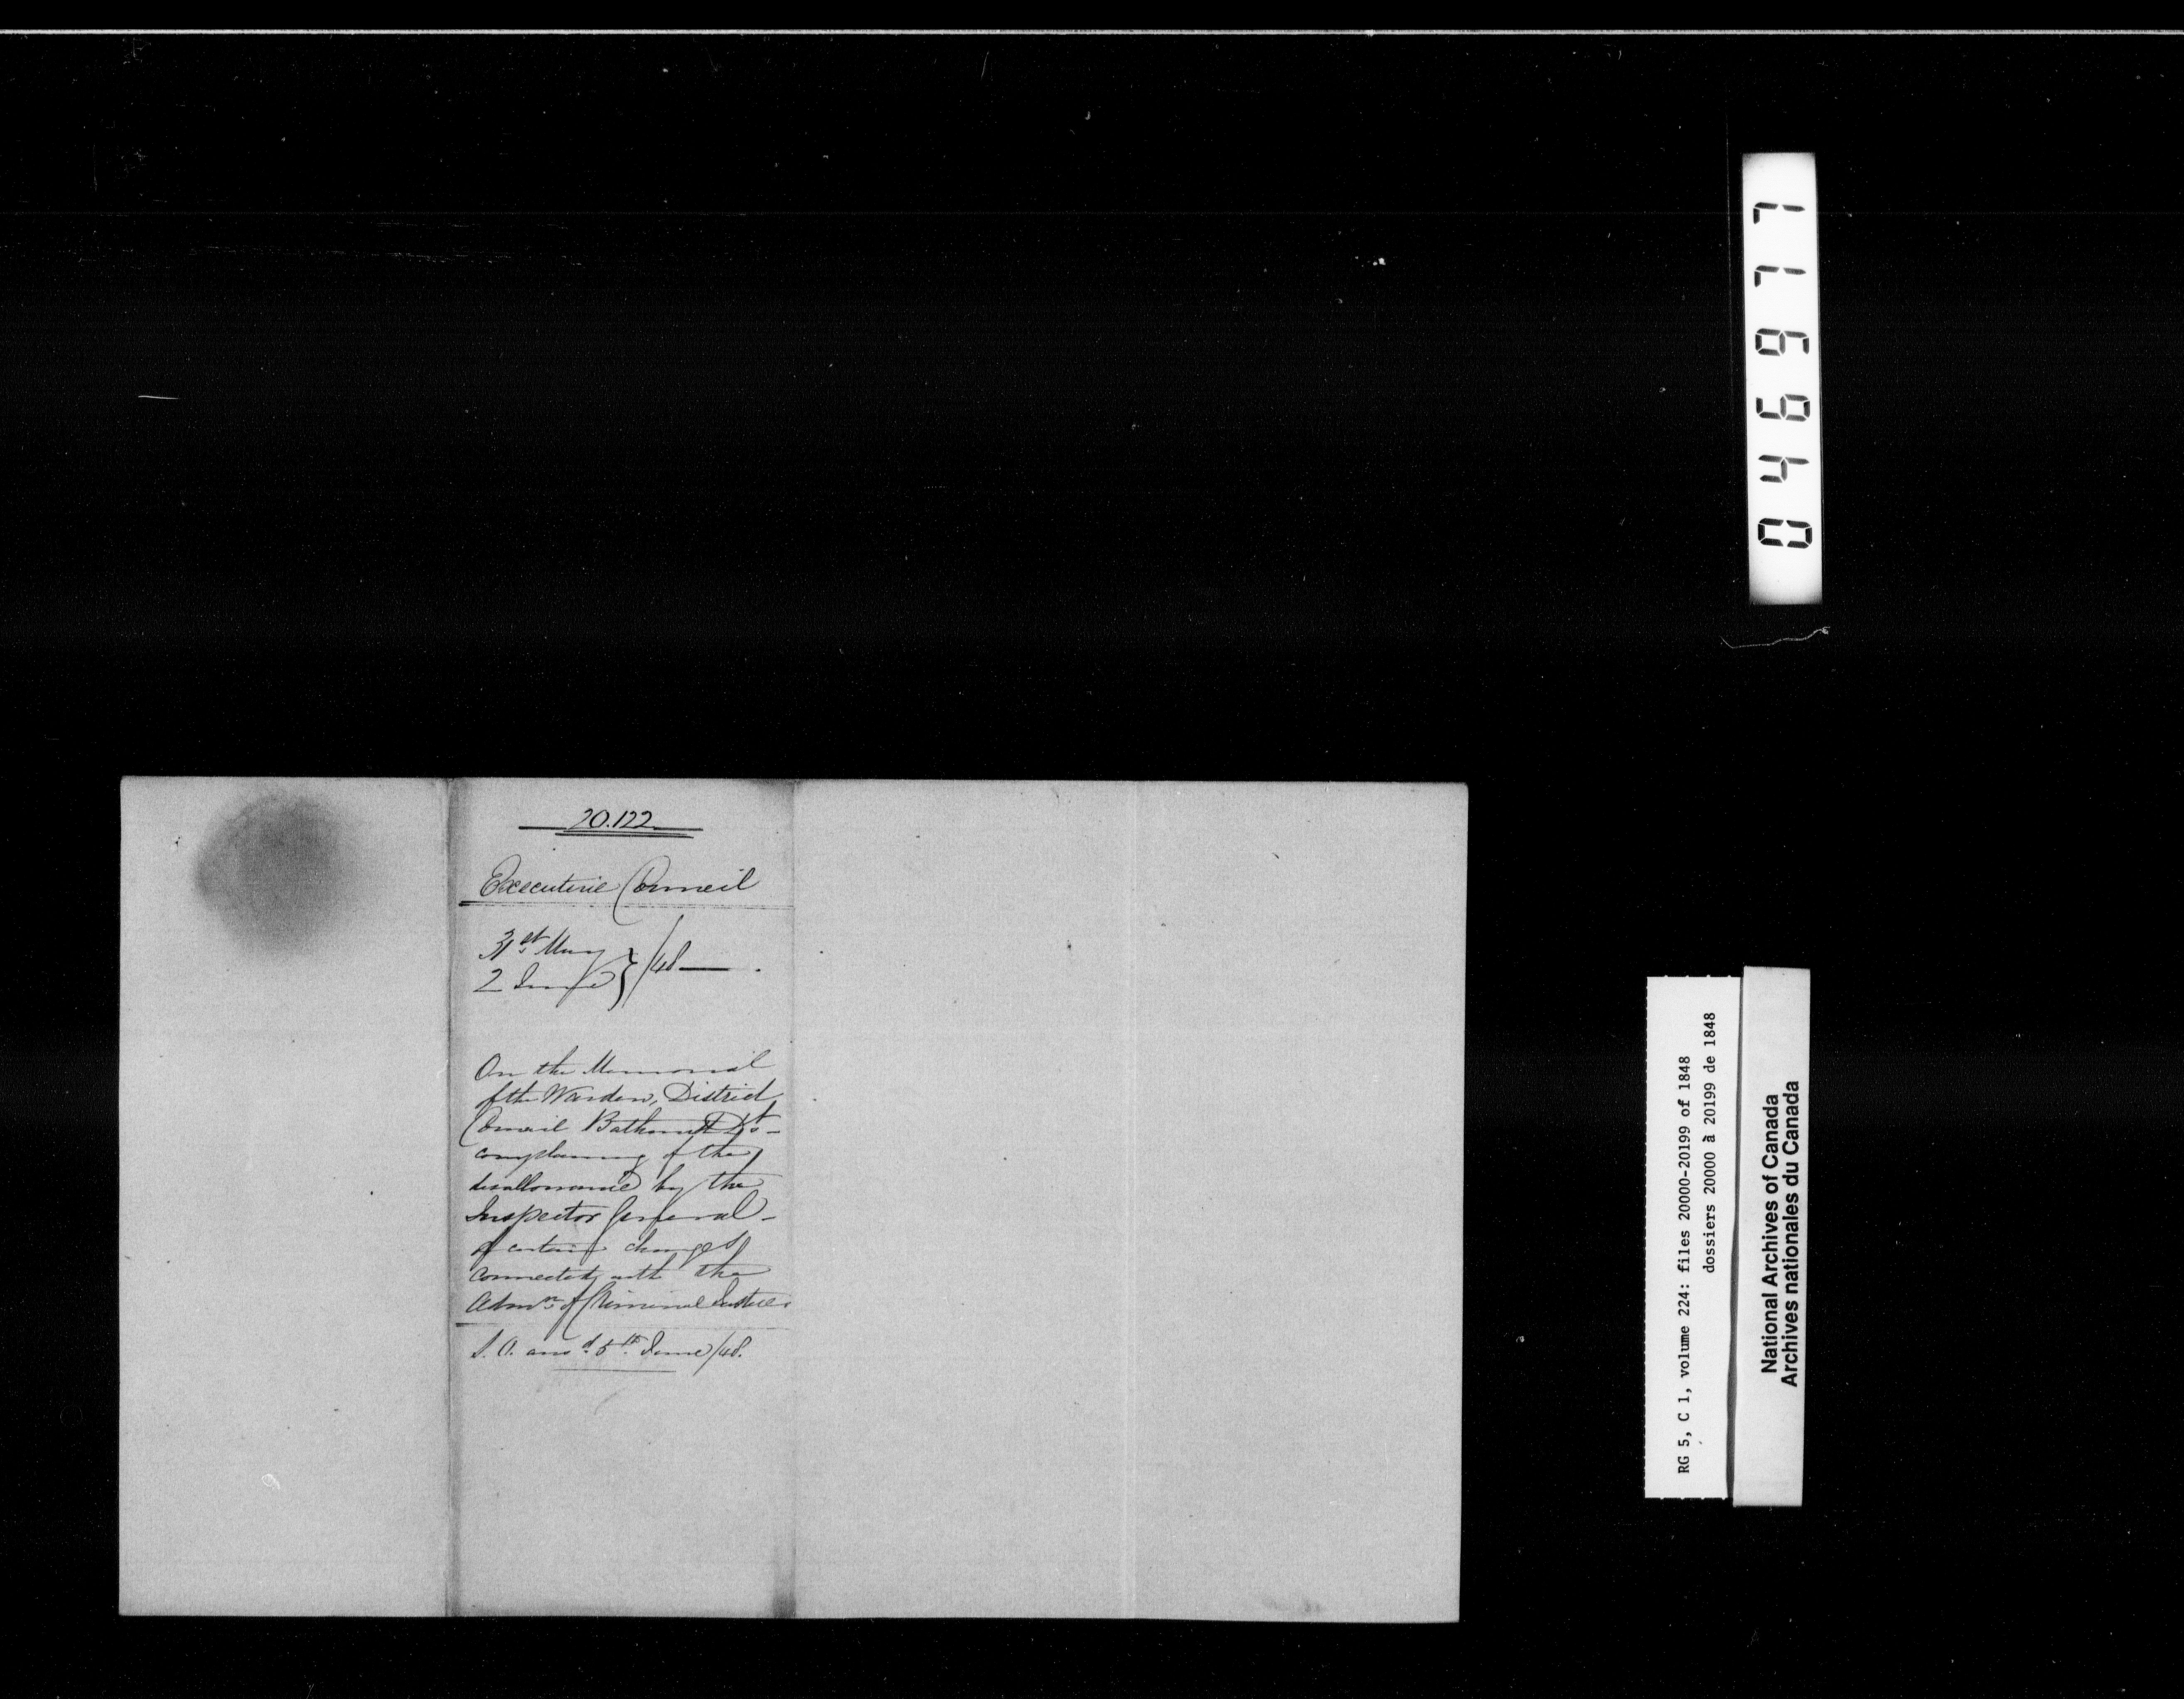 20.122
Executive Council
31st May } /48
2 June
On the Memorial
of the Warden, District
Council Bathurst Dt
complaining of the
disallowance by the
Inspector General
of certain charges
connected with the
Admn of Criminal Justice.
ansd 5th June/48.
046977
RG 5, C 1, volume 224: files 20000-20199 of 1848
dossiers 20000 à 20199 de 1848
National Archives of Canada
Archives nationales du Canada